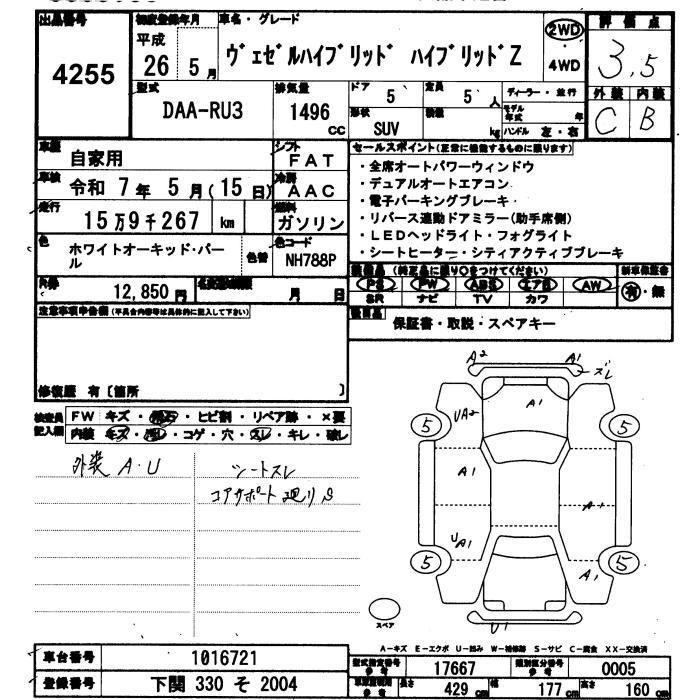 出品番号 4255
初度登録年月 平成 26年 5月
車名・グレード ヴェゼルハイブリッド ハイブリッドZ
2WD
・4WD
評価点 3.5
外装 C 内装 B
型式 DAA-RU3
排気量 1496 cc
ドア 5
形状 SUV
定員 5 人
積載 kg
ディーラー・並行
モデル年式 年
ハンドル 左・右
車歴 自家用
シフト FAT
車検 令和 7年 5月(15日)
冷房 AAC
走行 15万9千267 km
燃料 ガソリン
色 ホワイトオーキッド・パール
色替
色コード NH788P
12,850円
月 日
セールスポイント(正常に機能するものに限ります)
・全席オートパワーウィンドウ
・デュアルオートエアコン
・電子パーキングブレーキ
・リバース連動ドアミラー(助手席側)
・LEDヘッドライト・フォグライト
・シートヒーター・シティアクティブブレーキ
装備品 (純正品に限り○をつけてください)
新車保証書
PS PW ABS エアB AW
有・無
SR ナビ TV カワ
保証書・取説・スペアキー
注意事項申告欄(不具合内容等は具体的に記入して下さい)
修復歴 有〔箇所 〕
検査員記入欄
FW キズ・飛石・ヒビ割・リペア跡・×要
内装 キズ・汚レ・コゲ・穴・スレ・キレ・破レ
外装 A・U
シートスレ
コアサポート廻りS
A2 A1 ズレ
A1
UA2
5 5
A1
A1
UA1
5 5
A1
U1
スペア
A-キズ E-エクボ U-凹み W-補修跡 S-サビ C-腐食 XX-交換済
車台番号 1016721
登録番号 下関 330 そ 2004
型式指定番号 参考 17667
類別区分番号 参考 0005
長さ 429 cm 幅 177 cm 高さ 160 cm